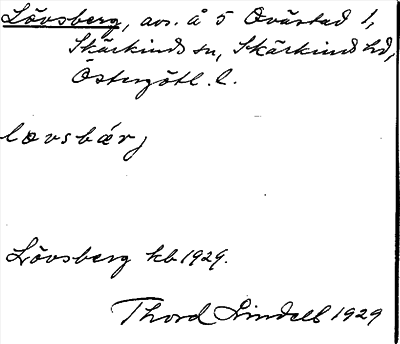 Lövsberg, avs. å 5 Ovästad 1,
Skärkinds sn, Skärkinds hd,
Östergötl. l.
lœvsbærj
Lövsberg kb 1929.
Thord Lindell 1929